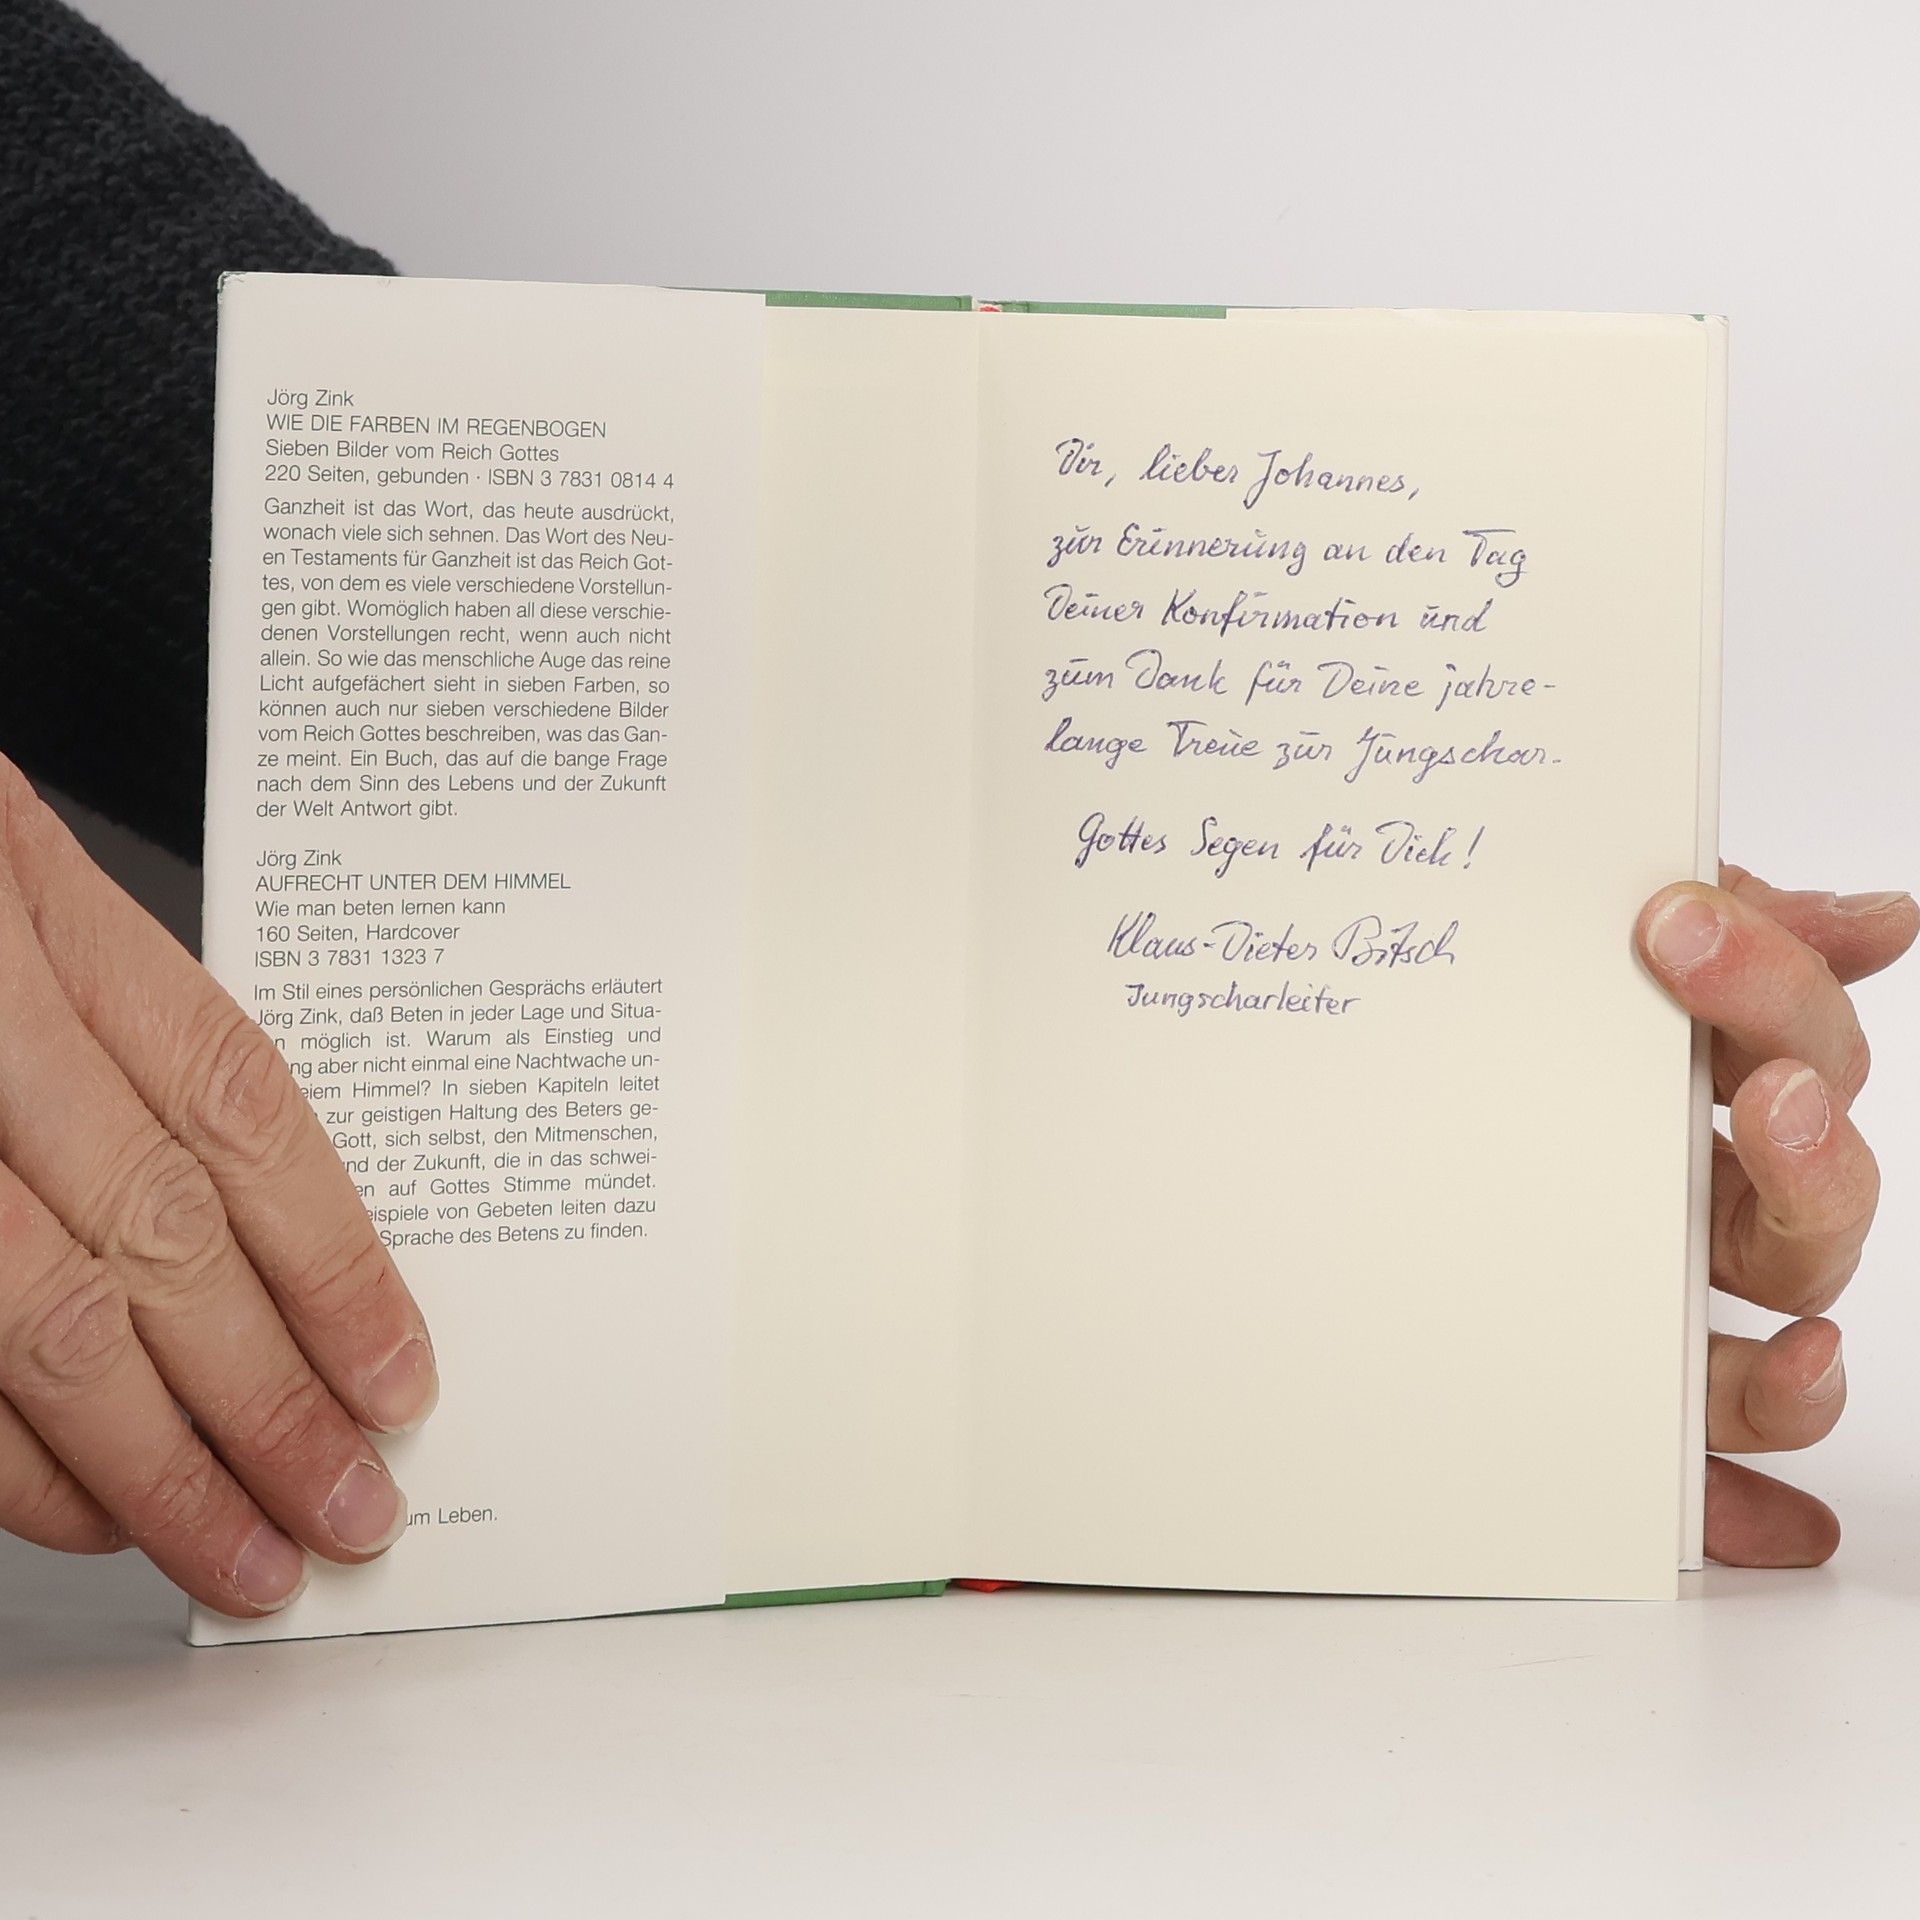 Jörg Zink
WIE DIE FARBEN IM REGENBOGEN
Sieben Bilder vom Reich Gottes
220 Seiten, gebunden · ISBN 3 7831 0814 4
Ganzheit ist das Wort, das heute ausdrückt,
wonach viele sich sehnen. Das Wort des Neu-
en Testaments für Ganzheit ist das Reich Got-
tes, von dem es viele verschiedene Vorstellun-
gen gibt. Womöglich haben all diese verschie-
denen Vorstellungen recht, wenn auch nicht
allein. So wie das menschliche Auge das reine
Licht aufgefächert sieht in sieben Farben, so
können auch nur sieben verschiedene Bilder
vom Reich Gottes beschreiben, was das Gan-
ze meint. Ein Buch, das auf die bange Frage
nach dem Sinn des Lebens und der Zukunft
der Welt Antwort gibt.
Jörg Zink
AUFRECHT UNTER DEM HIMMEL
Wie man beten lernen kann
160 Seiten, Hardcover
ISBN 3 7831 1323 7
Im Stil eines persönlichen Gesprächs erläutert
Jörg Zink, daß Beten in jeder Lage und Situa-
n möglich ist. Warum als Einstieg und
ng aber nicht einmal eine Nachtwache un-
eiem Himmel? In sieben Kapiteln leitet
zur geistigen Haltung des Beters ge-
Gott, sich selbst, den Mitmenschen,
nd der Zukunft, die in das schwei-
en auf Gottes Stimme mündet.
eispiele von Gebeten leiten dazu
Sprache des Betens zu finden.
um Leben.
Dir, lieber Johannes,
zur Erinnerung an den Tag
Deiner Konfirmation und
zum Dank für Deine jahre-
lange Treue zur Jungschar.
Gottes Segen für Dich!
Klaus-Dieter
Jungscharleiter